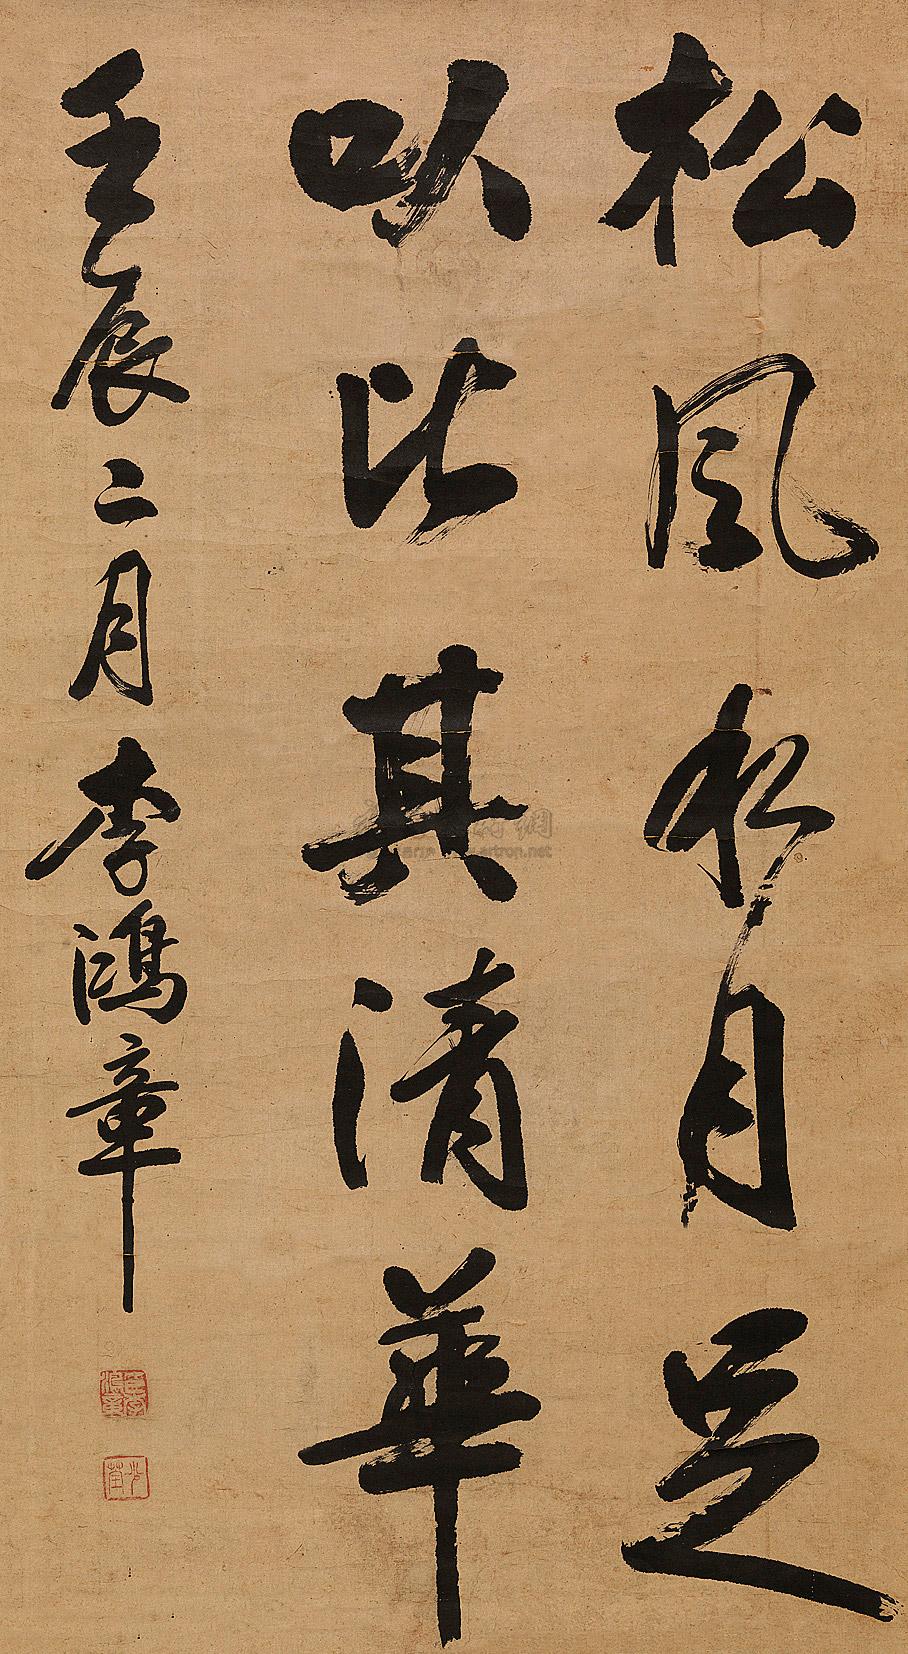 松風水月足
以比其清華
壬辰二月李鴻章